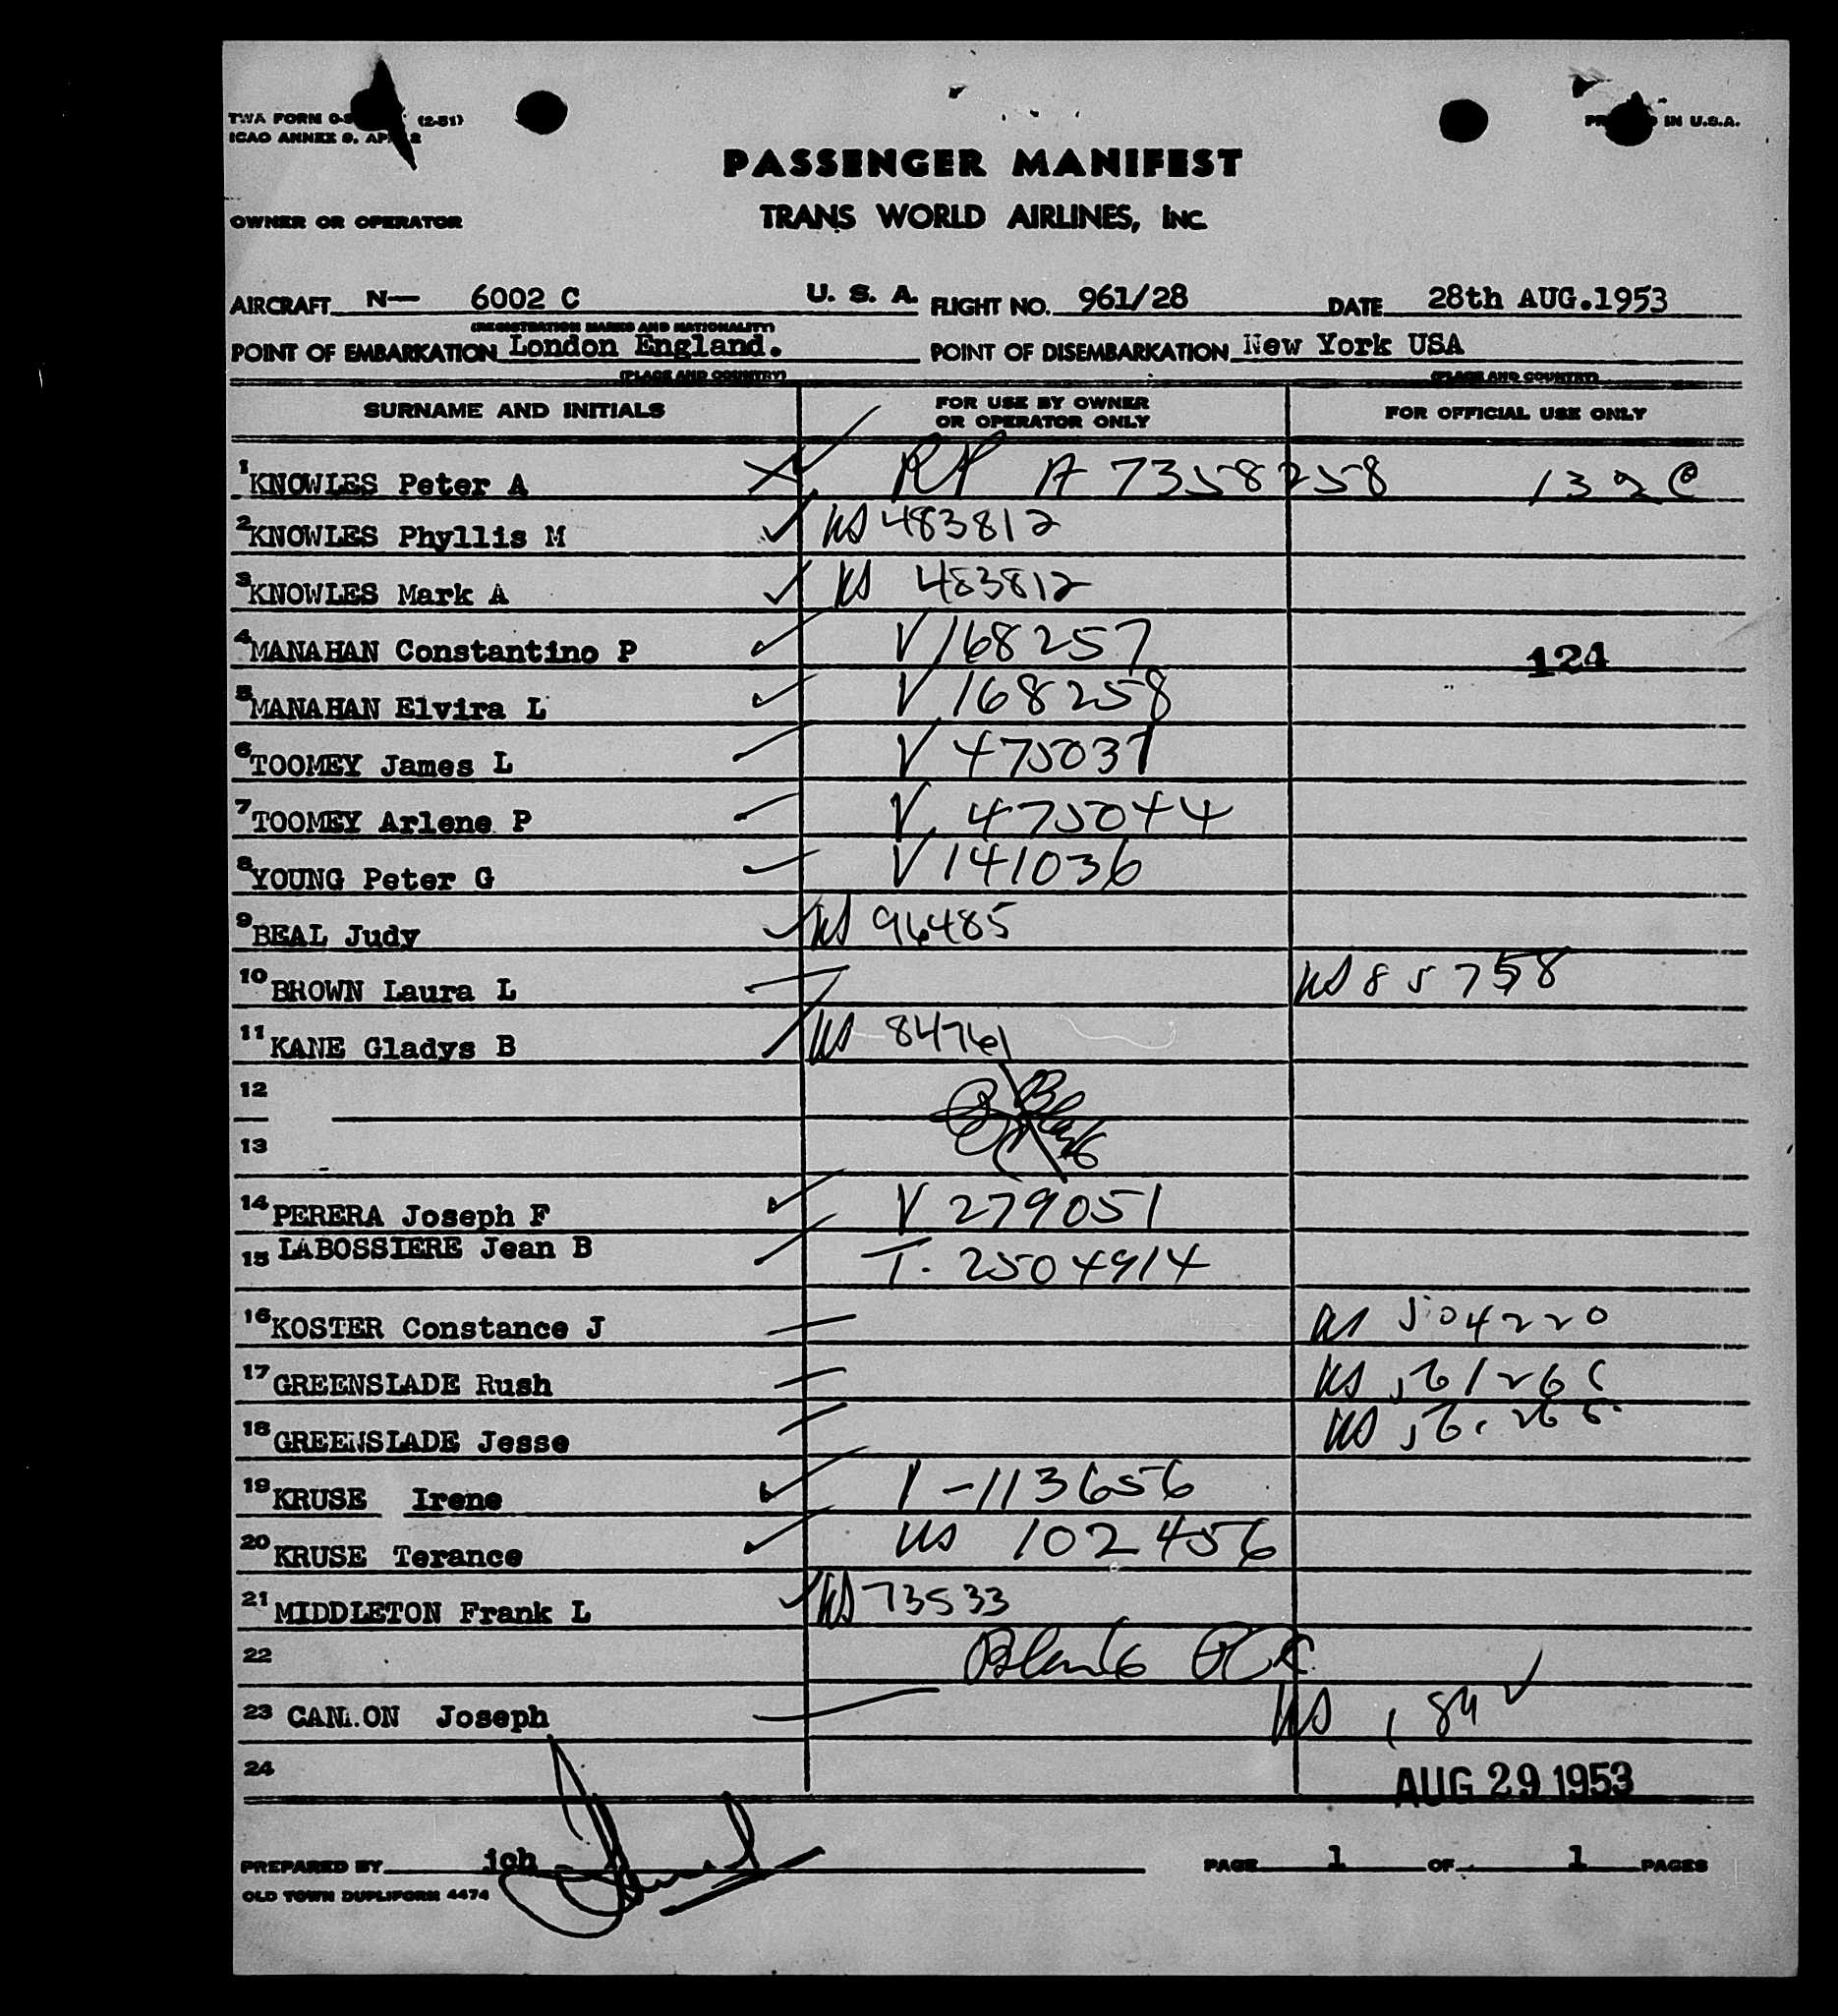 TWA FORM (2-51)
ICAO ANNEX 9, IN U.S.A.
PASSENGER MANIFEST
OWNER OR OPERATOR TRANS WORLD AIRLINES, INC.
AIRCRAFT N— 6002 C U. S. A. FLIGHT NO. 961/28 DATE 28th AUG.1953
(REGISTRATION MARKS AND NATIONALITY)
POINT OF EMBARKATION London England. POINT OF DISEMBARKATION New York USA
(PLACE AND COUNTRY) (PLACE AND COUNTRY)
SURNAME AND INITIALS FOR USE BY OWNER OR OPERATOR ONLY FOR OFFICIAL USE ONLY
1 KNOWLES Peter A RP A 7358258 1320
2 KNOWLES Phyllis M US 483812
3 KNOWLES Mark A US 483812
4 MANAHAN Constantino P V 168257 124
5 MANAHAN Elvira L V 168258
6 TOOMEY James L V 475037
7 TOOMEY Arlene P V 475044
8 YOUNG Peter G V 141036
9 BEAL Judy US 96485
10 BROWN Laura L US 85758
11 KANE Gladys B US 84761
12 Blank
13
14 PERERA Joseph F V 279051
15 LABOSSIERE Jean B T. 2504914
16 KOSTER Constance J US 504220
17 GREENSLADE Rush US
18 GREENSLADE Jesse US
19 KRUSE Irene 1-113656
20 KRUSE Terance US 102456
21 MIDDLETON Frank L US 73533
22 Blank
23 Joseph US
24
AUG 29 1953
PREPARED BY PAGE 1 OF 1 PAGES
OLD TOWN DUPLIFORM 4474